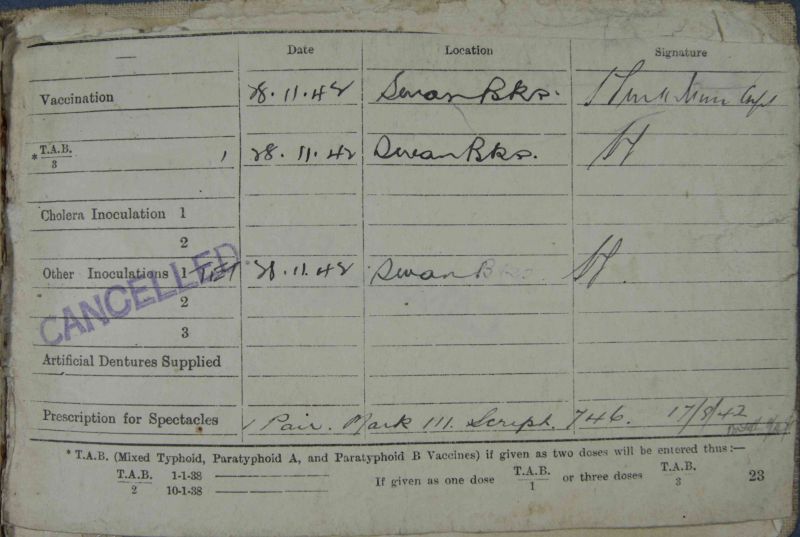 Date Location Signature
Vaccination 28.11.42 Swan Bks. Capt
* T.A.B. 3 1 28.11.42 Swan Bks.
Cholera Inoculation 1
2
Other Inoculations 1 TET 28.11.42 Swan Bks.
CANCELLED.
2
3
Artificial Dentures Supplied
Prescription for Spectacles 1 Pair. Mark III. Script. 746. 17/8/42
* T.A.B. (Mixed Typhoid, Paratyphoid A, and Paratyphoid B Vaccines) if given as two doses will be entered thus :—
T.A.B. 2 1-1-38
10-1-38
If given as one dose T.A.B. 1 or three doses T.A.B. 3
23